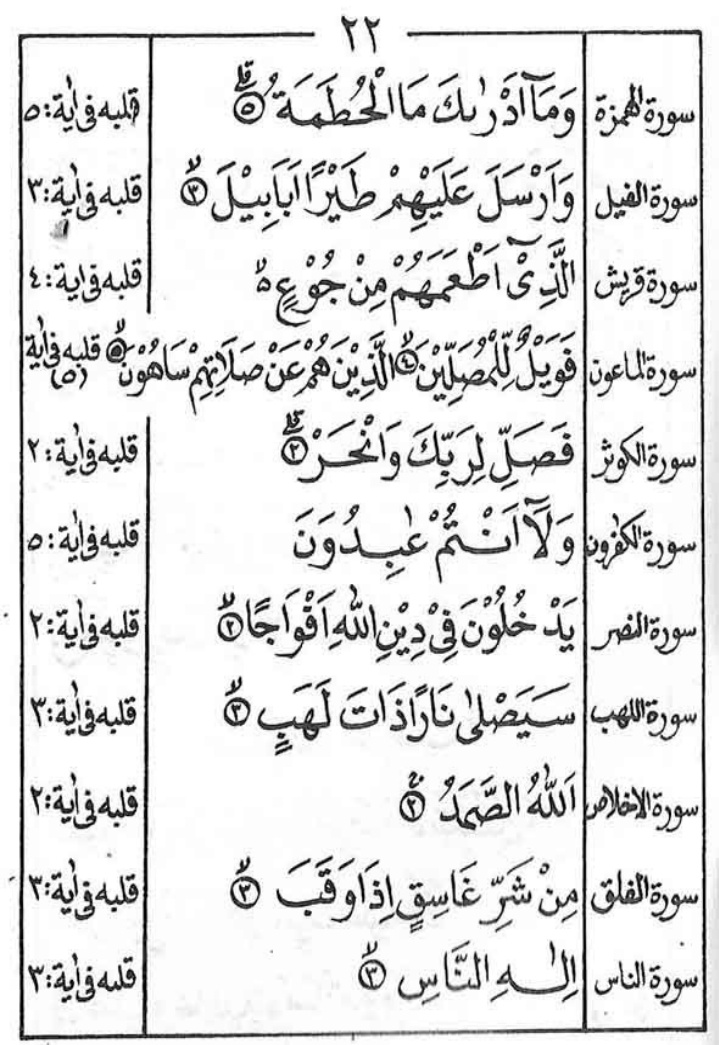 ٢٢
سورة الهمزة وَمَآ اَدْرٰىكَ مَا الْحُطَمَةُ ۝٥ قلبه فى اٰية: ٥
سورة الفيل وَاَرْسَلَ عَلَيْهِمْ طَيْرًا اَبَابِيْلَ ۝٣ قلبه فى اٰية: ٣
سورة قريش الَّذِىْٓ اَطْعَمَهُمْ مِنْ جُوْعٍ ۵ قلبه فى اية: ٤
سورة الماعون فَوَيْلٌ لِّلْمُصَلِّيْنَ ۝٤ الَّذِيْنَ هُمْ عَنْ صَلَاتِهِمْ سَاهُوْنَ ۝٥ قلبه فى اٰية (٥)
سورة الكوثر فَصَلِّ لِرَبِّكَ وَانْحَرْ ۝٢ قلبه فى اٰية: ٢
سورة الكفرون وَلَآ اَنْتُمْ عٰبِدُوْنَ قلبه فى اٰية: ٥
سورة النصر يَدْخُلُوْنَ فِىْ دِيْنِ اللّٰهِ اَفْوَاجًا ۝٢ قلبه فى اٰية: ٢
سورة اللهب سَيَصْلٰى نَارًا ذَاتَ لَهَبٍ ۝٣ قلبه فى اٰية: ٣
سورة الاخلاص اَللّٰهُ الصَّمَدُ ۝٢ قلبه فى اٰية: ٢
سورة الفلق مِنْ شَرِّ غَاسِقٍ اِذَا وَقَبَ ۝٣ قلبه فى اٰية: ٣
سورة الناس اِلٰهِ النَّاسِ ۝٣ قلبه فى اٰية: ٣